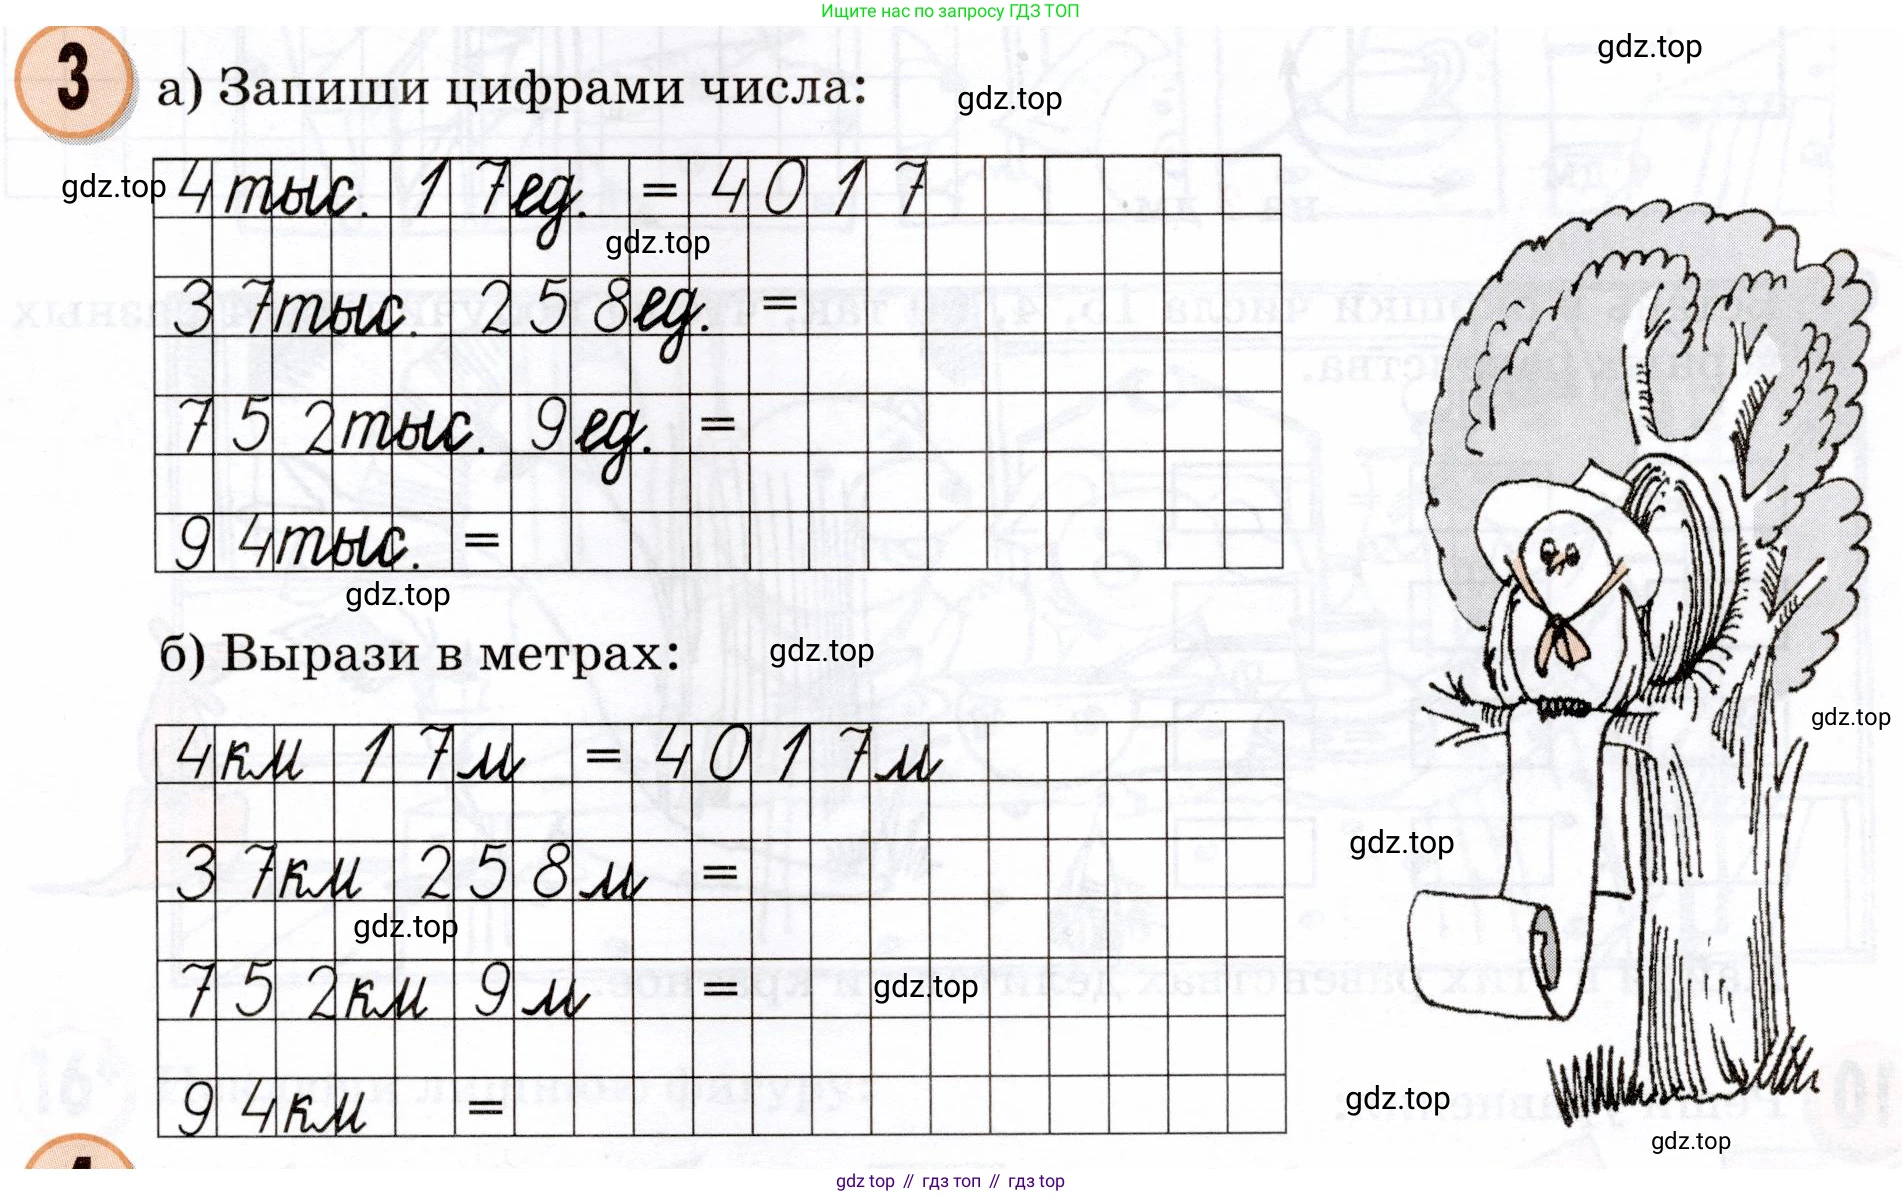 Ищите нас по запросу ГДЗ ТОП
gdz.top
3
а) Запиши цифрами числа:
gdz.top
gdz.top
4 тыс. 17 ед. = 4017
gdz.top
37 тыс. 258 ед. =
752 тыс. 9 ед. =
94 тыс. =
gdz.top
б) Вырази в метрах:
gdz.top
gdz.top
4 км 17 м = 4017 м
gdz.top
37 км 258 м =
gdz.top
752 км 9 м =
gdz.top
94 км =
gdz.top
gdz.top
gdz top // гдз топ // гдз top